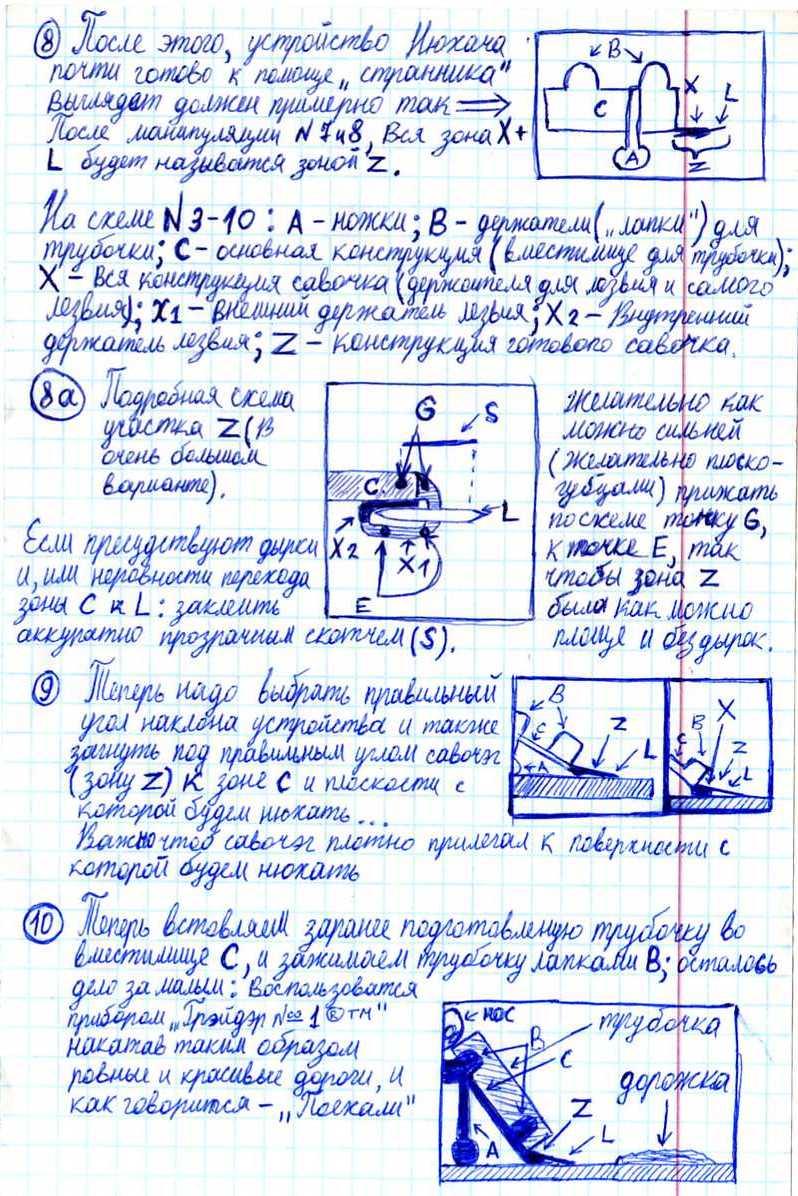 8 После этого, устройство Нюхача
почти готово к помоще „странника"
выглядет должен примерно так ⟹
После манипуляции №7и8, Вся зона X+
L будет называтся зоной Z.
B
C
X
L
A
Z
На схеме №3-10: A - ножки; B - держатели („лапки") для
трубочки; C - основная конструкция (вместимище для трубочки);
X - Вся конструкция савочка (держателя для лезвия и самого
лезвия); X1 - внешний держатель лезвия; X2 - Внутренний
держатель лезвия; Z - конструкция готового савочка.
8а Подробная схема
участка Z (в
очень большом
варианте).
Если пресудствуют дырки
и, или неровности перехода
зоны C к L: заклеить
аккуратно прозрачным скотчем (S).
G
S
C
L
X2
X1
E
желательно как
можно сильней
(желательно плоско-
губцами) прижать
по схеме точку G,
к точке E, так
чтобы зона Z
была как можно
площе и без дырок.
9 Теперь надо выбрать правильный
угол наклона устройства и также
загнуть под правильным углом савочэг
(зону Z) к зоне C и плоскости с
которой будем нюхать...
Важно чтоб савочэг плотно прилегал к поверхности с
которой будем нюхать
B
C
Z
L
A
X
B
C
Z
L
10 Теперь вставляем заранее подготовленую трубочку во
вместилище C, и зажимаем трубочку лапками B; осталось
дело за малым: Воспользоватся
прибором „Грэйдэр №∞1 ®тм"
накатав таким образом
ровные и красивые дороги, и
как говорится - „Поехали"
нос
трубочка
B
C
дорожка
Z
L
A